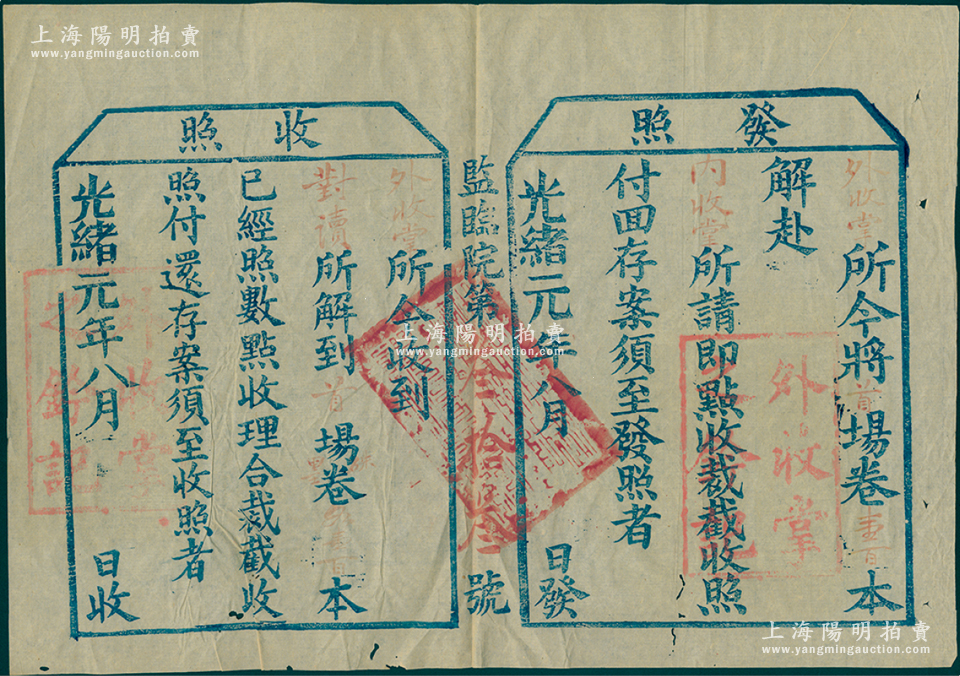 上海陽明拍賣
www.yangmingauction.com
發照
外收掌所今將首場卷壹百本
解赴
內收掌所請即點收裁截收照
付回存案須至發照者
光緒元年八月日發
外收掌
監臨院第叁拾號
收照
外收掌所今收到
對讀所解到首場卷壹百本
已經照數點收理合裁截收
照付還存案須至收照者
光緒元年八月日收
上海陽明拍賣
www.yangmingauction.com
上海陽明拍賣
www.yangmingauction.com